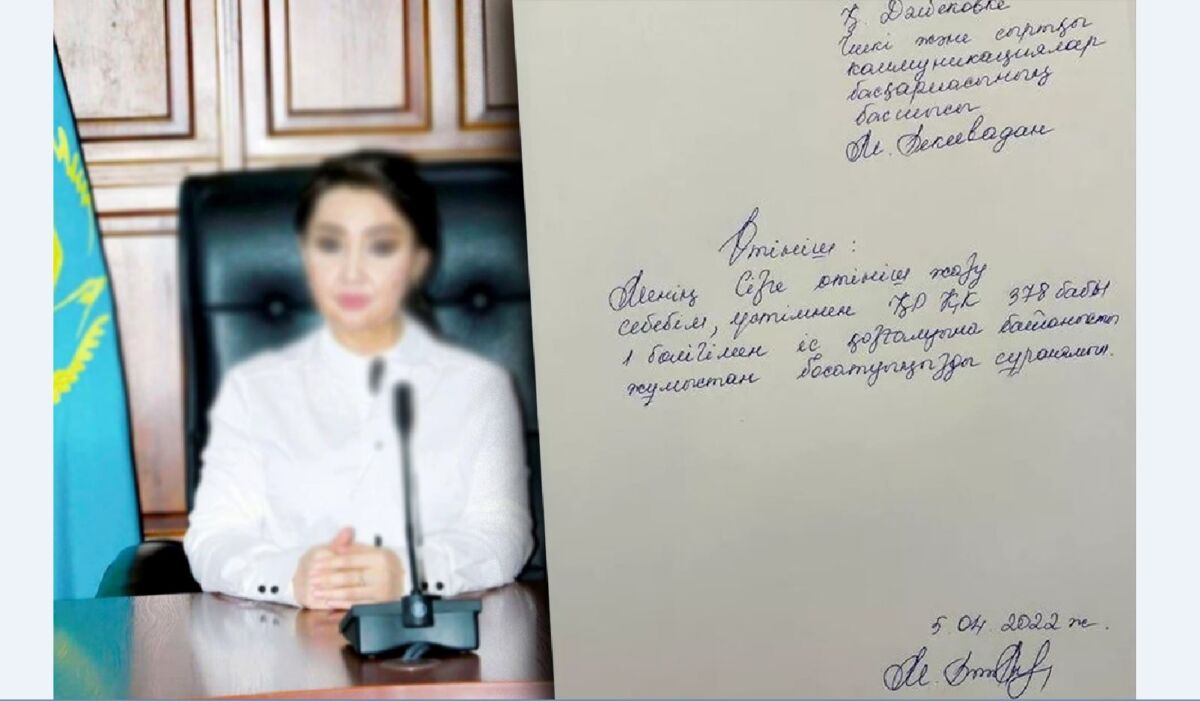 Қ. Дабековке
Ішкі және сыртқы
коммуникациялар
басқармасының
басшысы
М.
Өтініш :
Менің Сізге өтініш жазу
себебім, үстімнен ҚР ҚК 378 бабы
1 бөлігімен іс қозғалуына байланысты
жұмыстан босатуыңызды сұранамын.
5.04.2022 ж.
М.